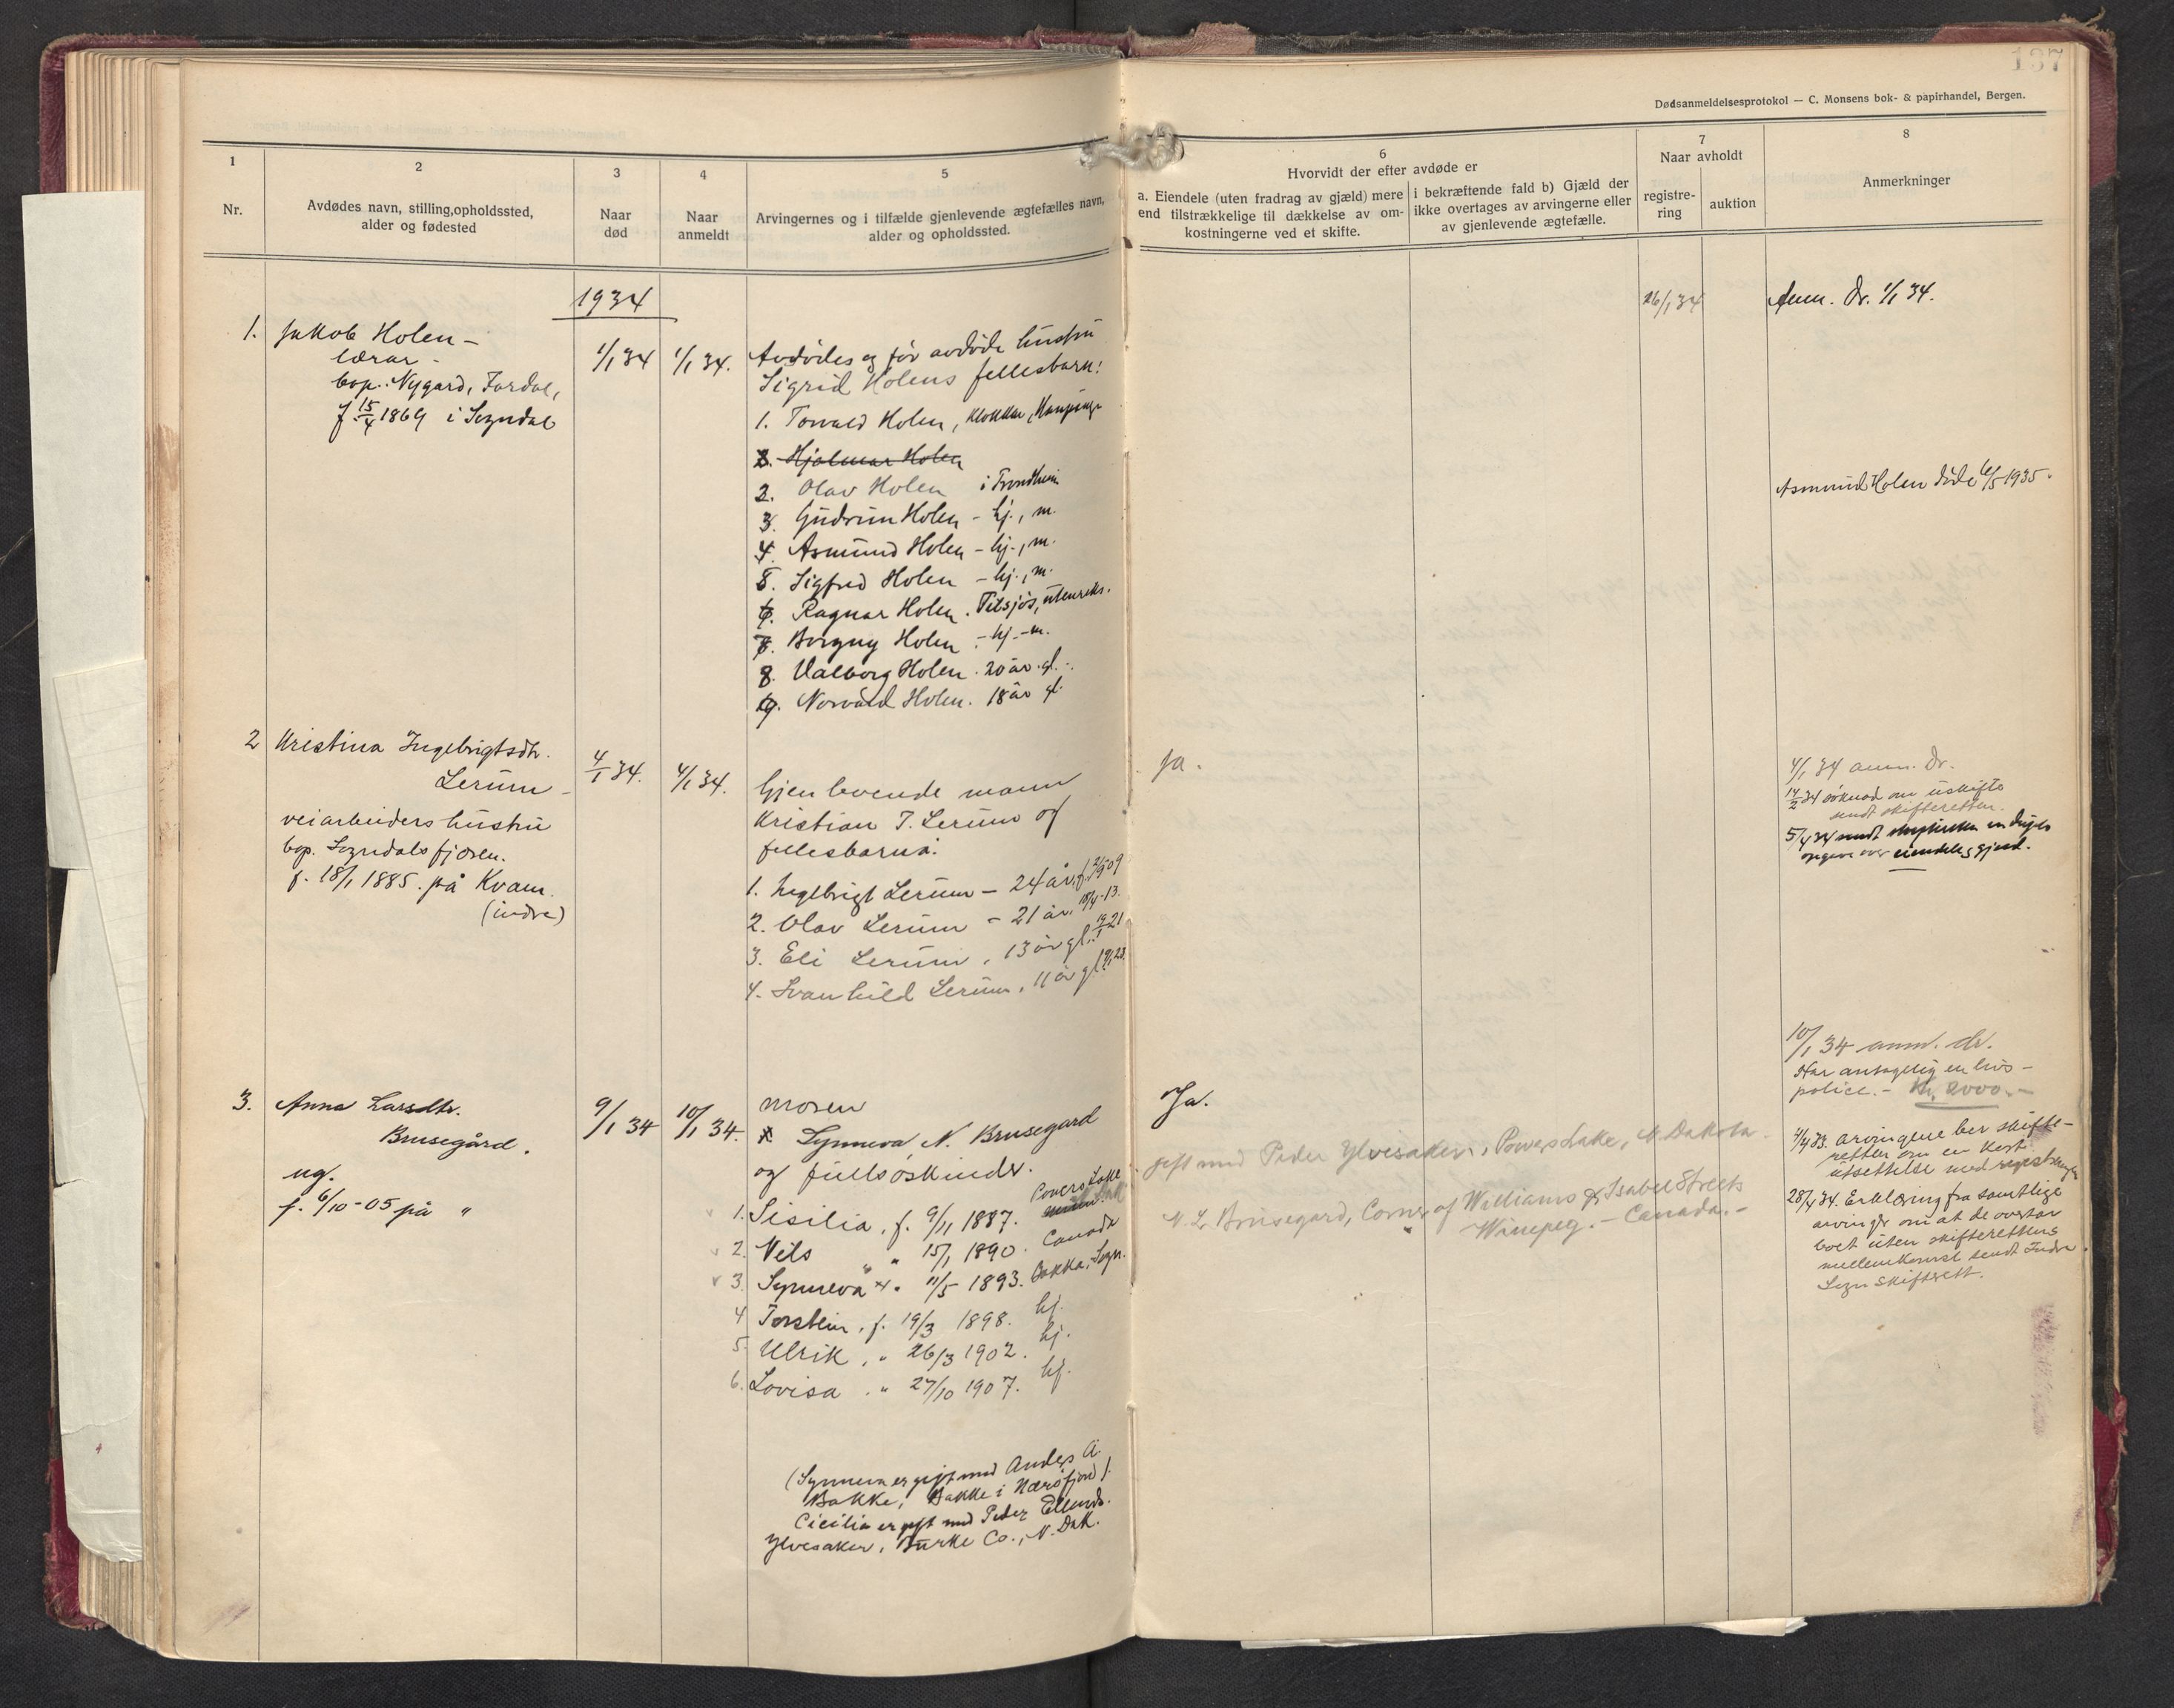 137
Dødsanmeldelsesprotokol — C. Monsens bok- & papirhandel, Bergen.
1
Nr.
2
Avdødes navn, stilling, opholdssted,
alder og fødested
3
Naar
død
4
Naar
anmeldt
5
Arvingernes og i tilfælde gjenlevende ægtefælles navn,
alder og opholdssted.
6
Hvorvidt der efter avdøde er
a. Eiendele (uten fradrag av gjæld) mere
end tilstrækkelige til dækkelse av om-
kostningerne ved et skifte.
i bekræftende fald b) Gjæld der
ikke overtages av arvingerne eller
av gjenlevende ægtefælle.
7
Naar avholdt
registre-
ring
auktion
8
Anmerkninger
1934
1. Jakob Holen –
lærar –
bop. Nygard, Fardal,
f. 15/4 1869 i Sogndal
1/1 34
1/1 34.
Avdødes og før avdøde hustru
Sigrid Holens fellesbarn:
1. Torvald Holen, klokkar,
Hjalmar Holen
2. Olav Holen i Trondheim
3. Gudrun Holen – hj., m.
4. Asmund Holen – hj., m.
5. Sigfred Holen – hj., m.
6. Ragnar Holen. Tilsjøs, utenriks.
7. Borgny Holen – hj. – m.
8. Valborg Holen. 20 år gl. –
9. Norvald Holen. 18 år gl.
26/1 34
Anm. Dr. 1/1 34.
Asmund Holen døde 6/5 1935.
2 Kristina Ingebrigtsdtr.
Lerum –
veiarbeiders hustru
bop. Sogndalsfjøren.
f. 18/1 1885. på Kvam.
(indre)
4/1 34.
4/1 34.
Gjenlevende mann
Kristian T. Lerum og
fellesbarna:
1. Ingebrigt Lerum – 24 år, f. 2/9 09
2. Olav Lerum – 21 år. 18/4 – 13.
3. Eli Lerum. 13 år gl. 19/1 21
4. Svanhild Lerum. 11 år gl. 23.
Ja.
4/1 34 anm. Dr.
14/2 34 søknad om uskifte
sendt skifteretten.
5/4 34 sendt skifteretten
opgave over eiendele & gjeld.
3. Anna Larsdtr.
Brusegård.
ug.
f. 6/10 – 05 på "
9/1 34
10/1 34.
moren
Synneva N. Brusegard
og fullsøskinder.
1. Sisilia, f. 9/11 1887. Powers Lake
2. Nels " " 15/1 1890. Canada
3. Synneva " 11/5 1893. Bakka, Sogn.
4 Torstein, f. 19/3 1898. hj.
5. Ulrik, " 26/3 1902. hj.
6. Lovisa " 27/10 1907. hj.
(Synneva er gift med Anders A.
Bakke, Bakke i Nærøfjord).
Cicilia er gift med Peder Ellends.
Ylvesaker, Burke Co., N. Dak.
Ja.
gift med Peder Ylvisaker, Powers Lake, N. Dakota.
N. L. Brusegard, Corner of Williams & Isabel Streets
Winepeg. – Canada. –
10/1 34 anm. dr.
Har antagelig en livs-
police. – Kr. 2000. –
arvingene ber skifte-
retten om en kort
utsettelse med registreringen
28/4 34. Erklæring fra samtlige
arvinger om at de overtar
boet uten skifterettens
mellemkomst sendt Indre
Sogn skifterett.